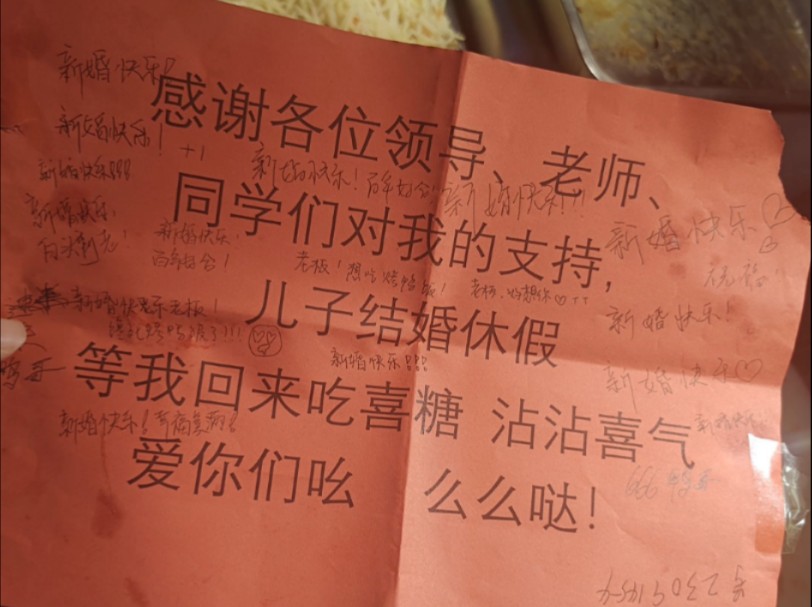 感谢各位领导、老师、
同学们对我的支持,
儿子结婚休假
等我回来吃喜糖 沾沾喜气
爱你们吆 么么哒!
新婚快乐!
新婚快乐! +1
新婚快乐!!!
新婚快乐!百年好合!
新婚快乐!!!
新婚快乐
白头到老!
新婚快乐
百年好合!
新婚快乐♡
祝福!
老板!想吃烤鸭饭!
老板,好想你♡
新婚快乐老板!
新婚快乐!
新婚快乐!!!
新婚快乐♡
新婚快乐!幸福美满!
新婚快乐
666 鸭哥